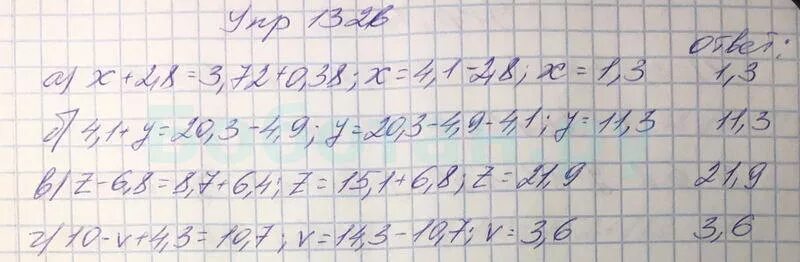 Упр 1326
ответ:
а) x+2,8=3,72+0,38; x=4,1-2,8; x=1,3 1,3
б) 4,1+y=20,3-4,9; y=20,3-4,9-4,1; y=11,3 11,3
в) z-6,8=8,7+6,4; z=15,1+6,8; z=21,9 21,9
г) 10-v+4,3=10,7; v=14,3-10,7; v=3,6 3,6